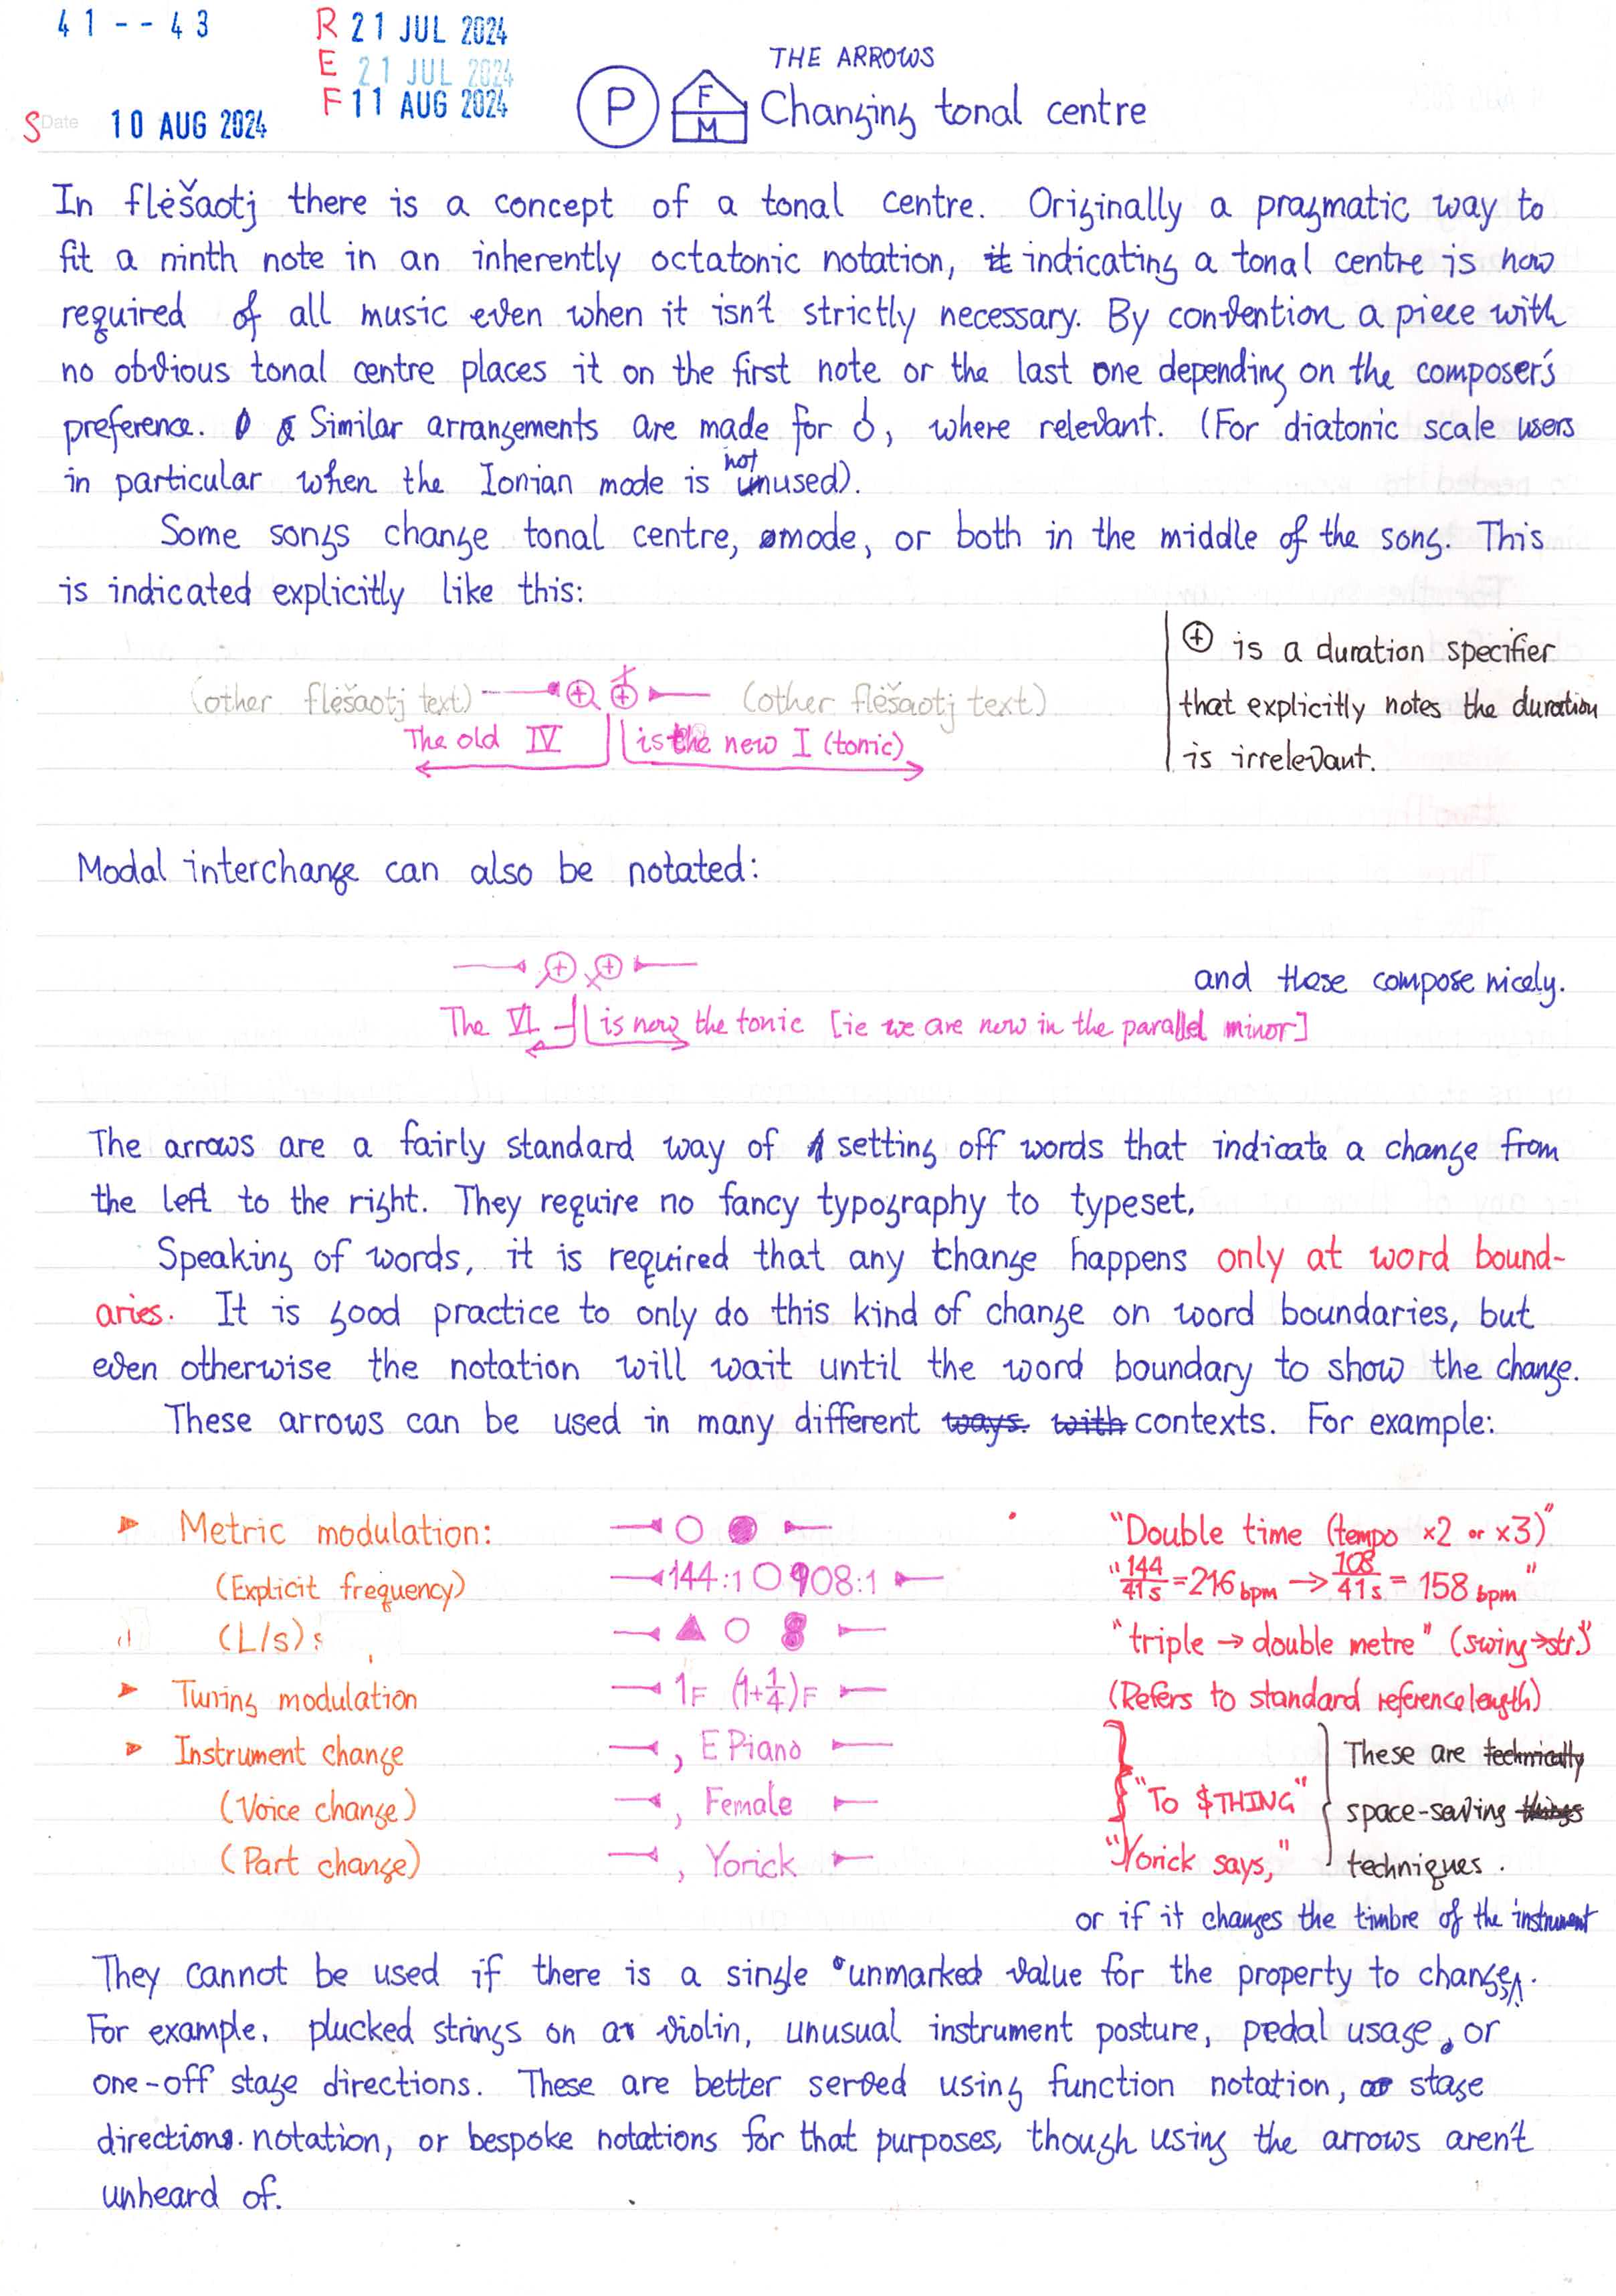 41--43
R 21 JUL 2024
E 21 JUL 2024
F 11 AUG 2024
S Date 10 AUG 2024
THE ARROWS
P F M Changing tonal centre
In flėšaotj there is a concept of a tonal centre. Originally a pragmatic way to
fit a ninth note in an inherently octatonic notation, it indicating a tonal centre is now
required of all music even when it isn't strictly necessary. By convention a piece with
no obvious tonal centre places it on the first note or the last one depending on the composer's
preference. Similar arrangements are made for , where relevant. (For diatonic scale users
in particular when the Ionian mode is not used).
Some songs change tonal centre, mode, or both in the middle of the song. This
is indicated explicitly like this:
(other flėšaotj text) (other flėšaotj text)
The old IV is the new I (tonic)
⊕ is a duration specifier
that explicitly notes the duration
is irrelevant.
Modal interchange can also be notated:
and these compose nicely.
The VI is now the tonic [ie we are now in the parallel minor]
The arrows are a fairly standard way of setting off words that indicate a change from
the left to the right. They require no fancy typography to typeset.
Speaking of words, it is required that any change happens only at word bound-
aries. It is good practice to only do this kind of change on word boundaries, but
even otherwise the notation will wait until the word boundary to show the change.
These arrows can be used in many different ways. with contexts. For example:
➤ Metric modulation: ○ ● "Double time (tempo ×2 or ×3)"
(Explicit frequency) 144:1 ○ 108:1 "144/41s = 216 bpm → 108/41s = 158 bpm"
(L/s): ▲ ○ 8 "triple → double metre" (swing→str)"
➤ Tuning modulation 1F (1+1/4)F (Refers to standard reference length)
➤ Instrument change , E Piano
(Voice change) , Female "To $THING"
(Part change) , Yorick "Yorick says,"
These are technically
space-saving things
techniques.
or if it changes the timbre of the instrument
They cannot be used if there is a single unmarked value for the property to change.
For example, plucked strings on a violin, unusual instrument posture, pedal usage, or
one-off stage directions. These are better served using function notation, or stage
directions. notation, or bespoke notations for that purposes, though using the arrows aren't
unheard of.